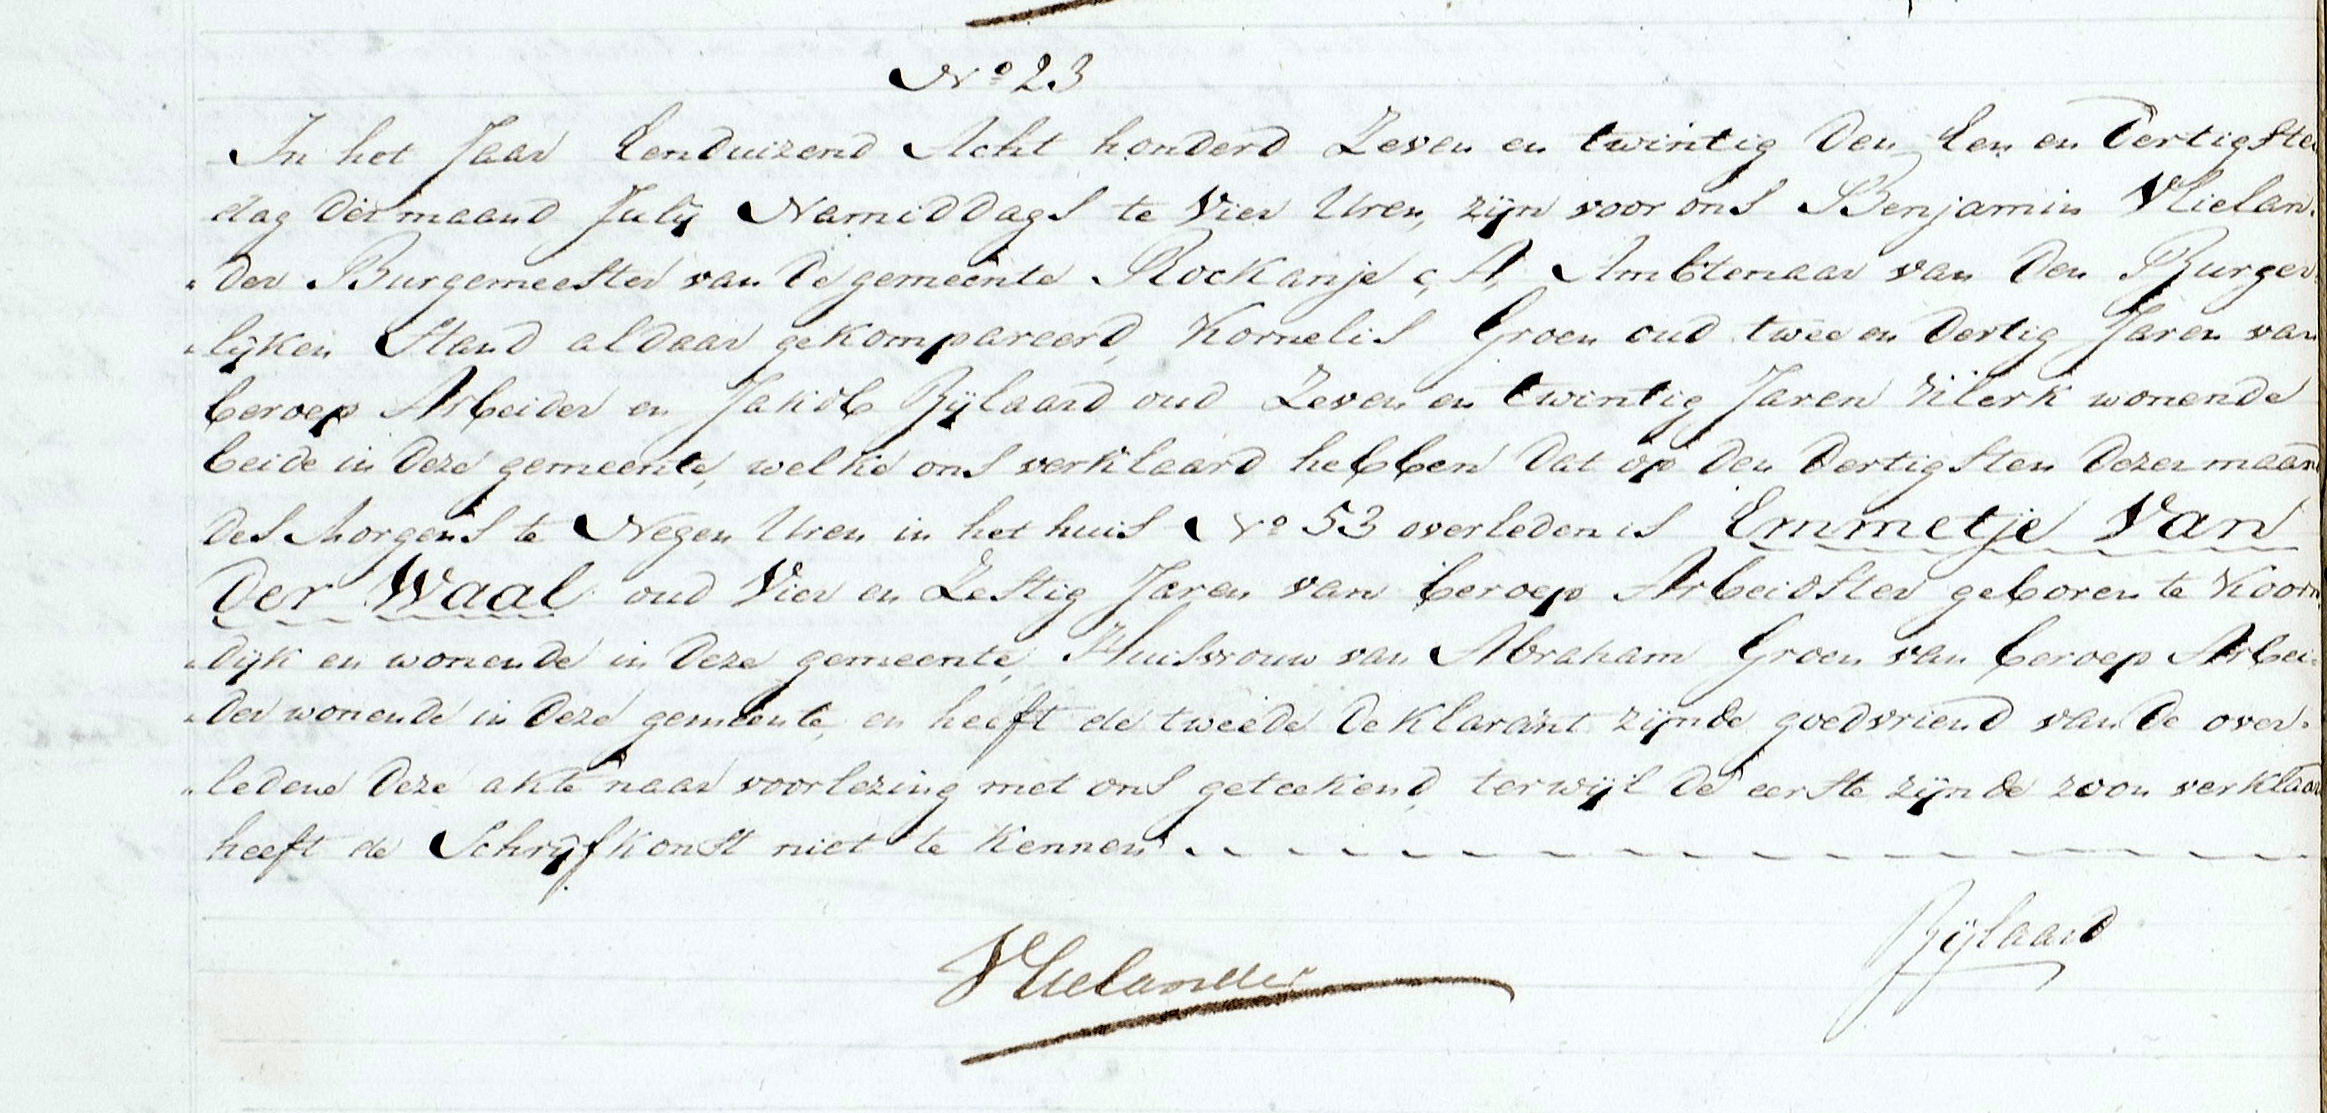 No 23
In het Jaar Eenduizend Acht honderd Zeven en twintig den Een en dertigste
dag der maand July Namiddags te Vier Uren, zijn voor ons Benjamin Vlielan-
„der Burgemeester van de gemeente Rockanje c, A, Ambtenaar van den Burger-
„lijken Stand aldaar gekompareerd, Kornelis Groen oud twee en dertig Jaren van
beroep Arbeider en Jakob Bijlaard oud Zeven en twintig Jaren klerk wonende
beide in deze gemeente, welke ons verklaard hebben dat op den dertigsten dezer maand
des Morgens te Negen Uren in het huis No 53 overleden is Emmetje Van
der Waal oud Vier en Zestig Jaren van beroep Arbeidster geboren te Koorn
„dijk en wonende in deze gemeente, Huisvrouw van Abraham Groen van beroep Arbei-
„der wonende in deze gemeente, en heeft de tweede deklarant zijnde goedvriend van de over-
„ledene deze akte naar voorlezing met ons geteekend, terwijl de eerste zijnde zoon verklaar
heeft de Schrijfkonst niet te kennen
Bijlaard
Vlielander